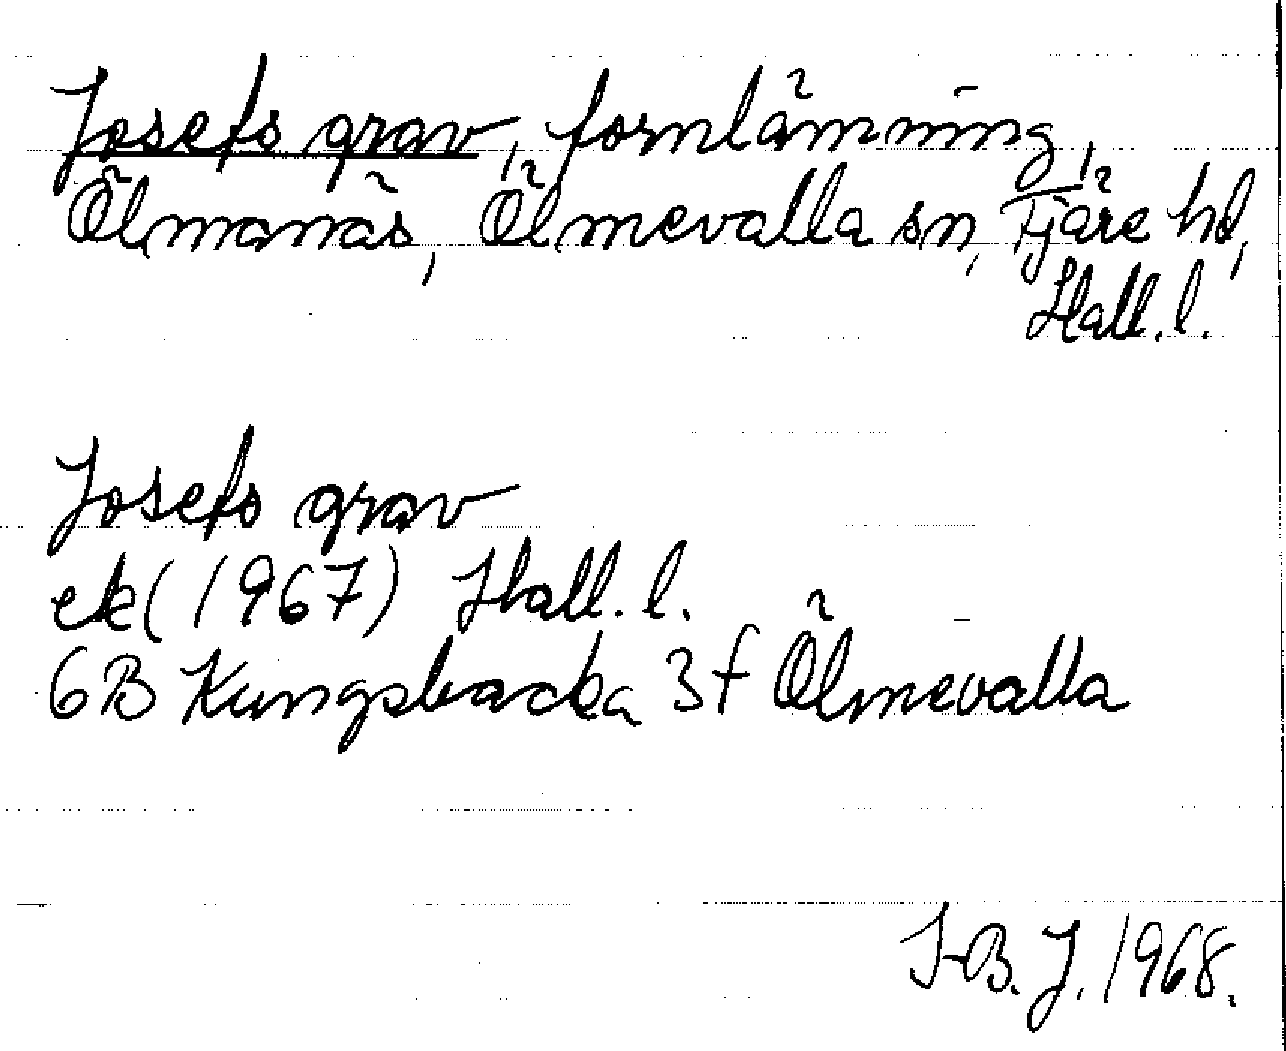 Josefs grav, fornlämning,
Ölmanäs, Ölmevalla sn, Fjäre hd,
Hall. l.
Josefs grav
ek (1967) Hall. l.
6B Kungsbacka 3f Ölmevalla
I-B. J. 1968.